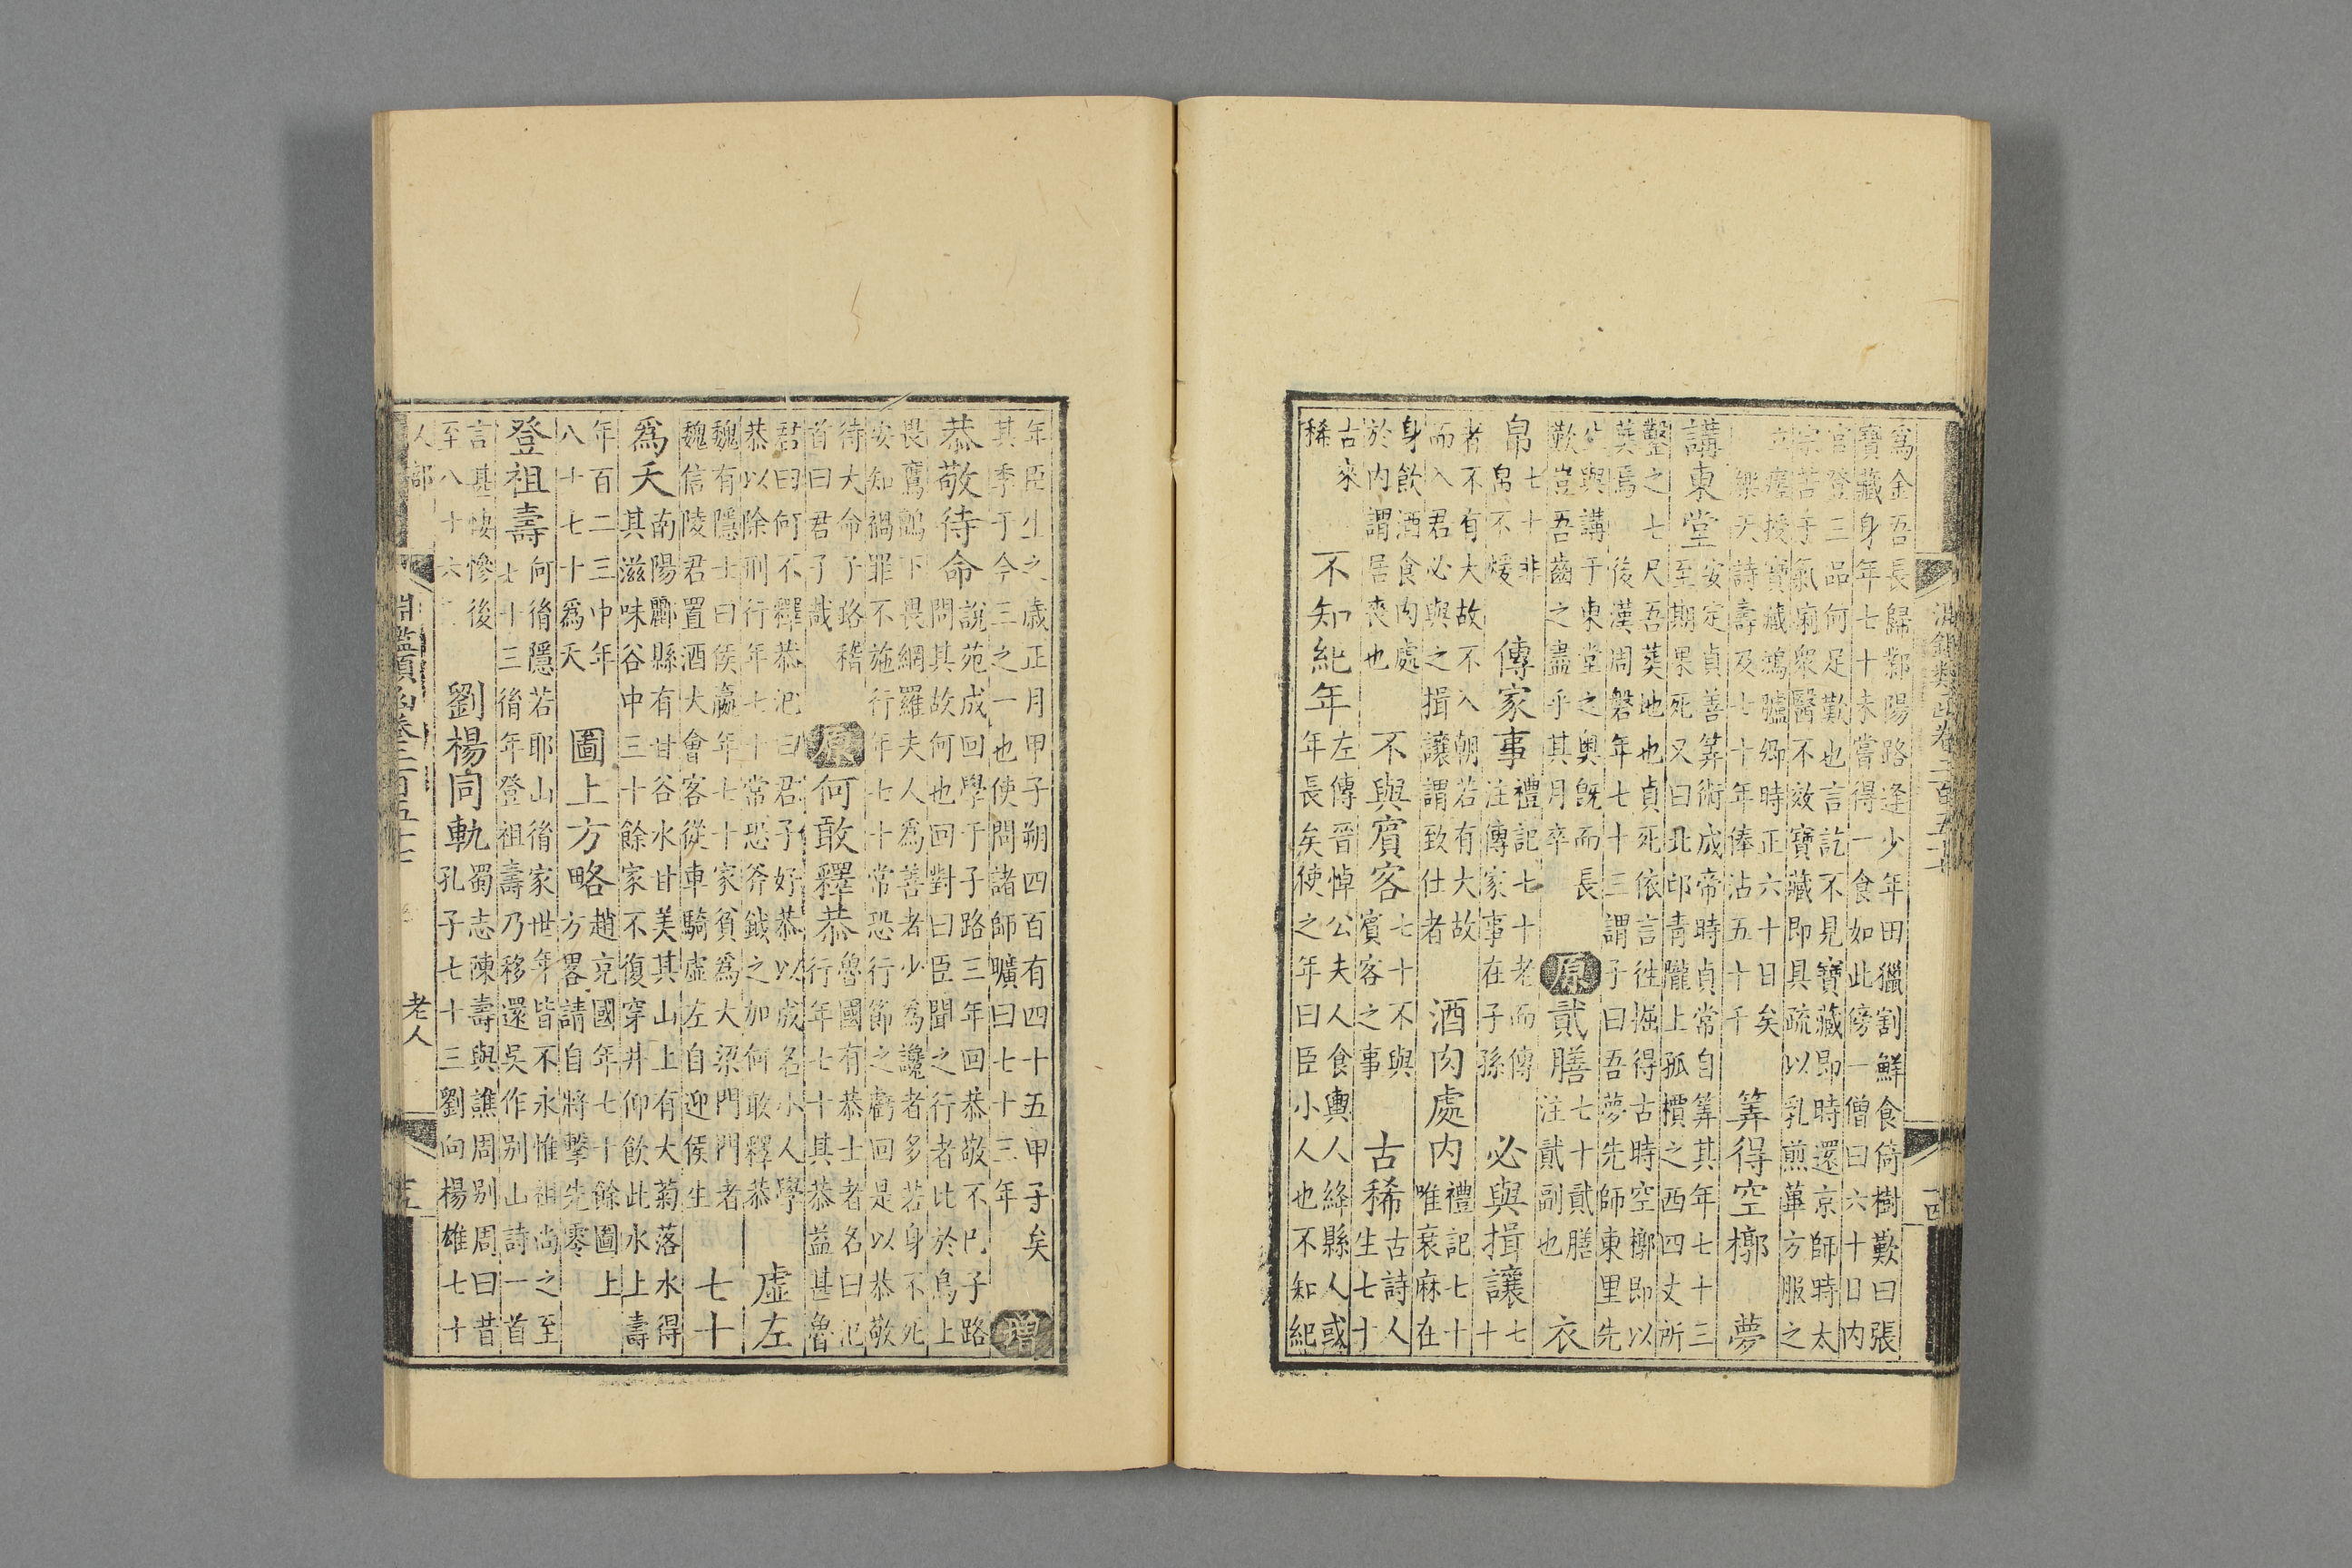 寫金吾長歸鄴陽路逢少年田獵割鮮食倚樹歎曰張
寶藏身年七十未嘗得一食如此傍一僧曰六十日内
官登三品何足歎也言訖不見寶藏即時還京師時太
宗苦手氣痢衆醫不效寶藏即具疏以乳煎蓽方服之
立瘥授寶藏鴻臚卿時正六十日矣
樂天詩壽及七十年俸沾五十千
筭得空槨　夢
講東堂
安定貞善筭術成帝時貞常自筭其年七十三
至期果死又曰北邙青隴上孤檟之西四丈所
鑿之七尺吾葬地也貞死依言徃掘得古時空槨即以
葬焉　後漢周磐年七十三謂子曰吾夢先師東里先
生與講于東堂之奥既而長
歎豈吾齒之盡乎其月卒
原　貳膳
七十貳膳
注貳副也
衣
帛
七十非
帛不煖
傳家事
禮記七十老而傳
注傳家事在子孫
必與揖讓
七
十
者不有大故不入朝若有大故
而入君必與之揖讓謂致仕者
酒肉處内
禮記七十
唯衰麻在
身飲酒食肉處
於内謂居喪也
不與賓客
七十不與
賓客之事
古稀
古詩人
生七十
古來
稀
不知紀年
左傳晉悼公夫人食輿人人絳縣人或
年長矣使之年曰臣小人也不知紀
淵鑑類函卷二百五十七
十四
年臣生之歳正月甲子朔四百有四十五甲子矣
其季于今三之一也使問諸師曠曰七十三年
增
恭敬待命
說苑成回學于子路三年回恭敬不已子路
問其故何也回對曰臣聞之行者比於鳥上
畏鷹鸇下畏網羅夫人爲善者少爲讒者多若身不死
安知禍罪不施行年七十常恐行節之虧回是以恭敬
待大命子路稽
首曰君子哉
原　何敢釋恭
魯國有恭士者名曰氾
行年七十其恭益甚魯
君曰何不釋恭氾曰君子好恭以成名小人學
恭以除刑行年七十常恐斧鉞之加何敢釋恭
虛左
魏有隱士曰侯嬴年七十家貧爲大梁門門者
魏信陵君置酒大會客從車騎虛左自迎侯生
七十
爲夭
南陽酈縣有甘谷水甘美其山上有大菊落水得
其滋味谷中三十餘家不復穿井仰飲此水上壽
年百二三中年
八十七十爲夭
圖上方略
趙充國年七十餘圖上
方畧請自將擊先零
登祖壽
何偱隱若耶山偱家世年皆不永惟祖尚之至
七十三偱年登祖壽乃移還吳作别山詩一首
言甚悽慘後
至八十六
劉楊同軌
蜀志陳壽與譙周别周曰昔
孔子七十三劉向楊雄七十
人部
老人